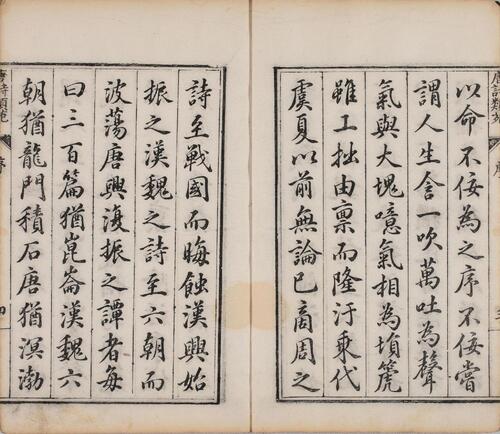 以命不佞為之序不佞嘗
謂人生含一吹萬吐為聲
氣與大塊噫氣相為塤箎
雖工拙由稟而隆汙乘代
虞夏以前無論已商周之
詩至戰國而晦蝕漢興始
振之漢魏之詩至六朝而
波蕩唐興復振之譚者每
曰三百篇猶崑崙漢魏六
朝猶龍門積石唐猶溟渤
唐詩類苑
序
四